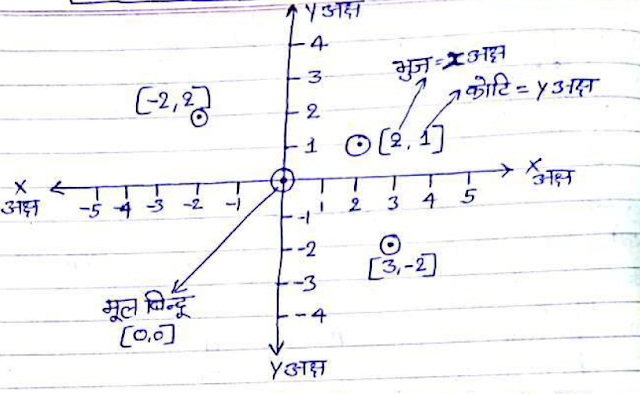 Y अक्ष
4
3
भुज = x अक्ष
[-2, 2]
कोटि = Y अक्ष
2
1
[2, 1]
X
अक्ष
-5 -4 -3 -2 -1
1 2 3 4 5
X
अक्ष
-1
-2
[3,-2]
-3
मूल बिन्दू
-4
[0,0]
Y अक्ष